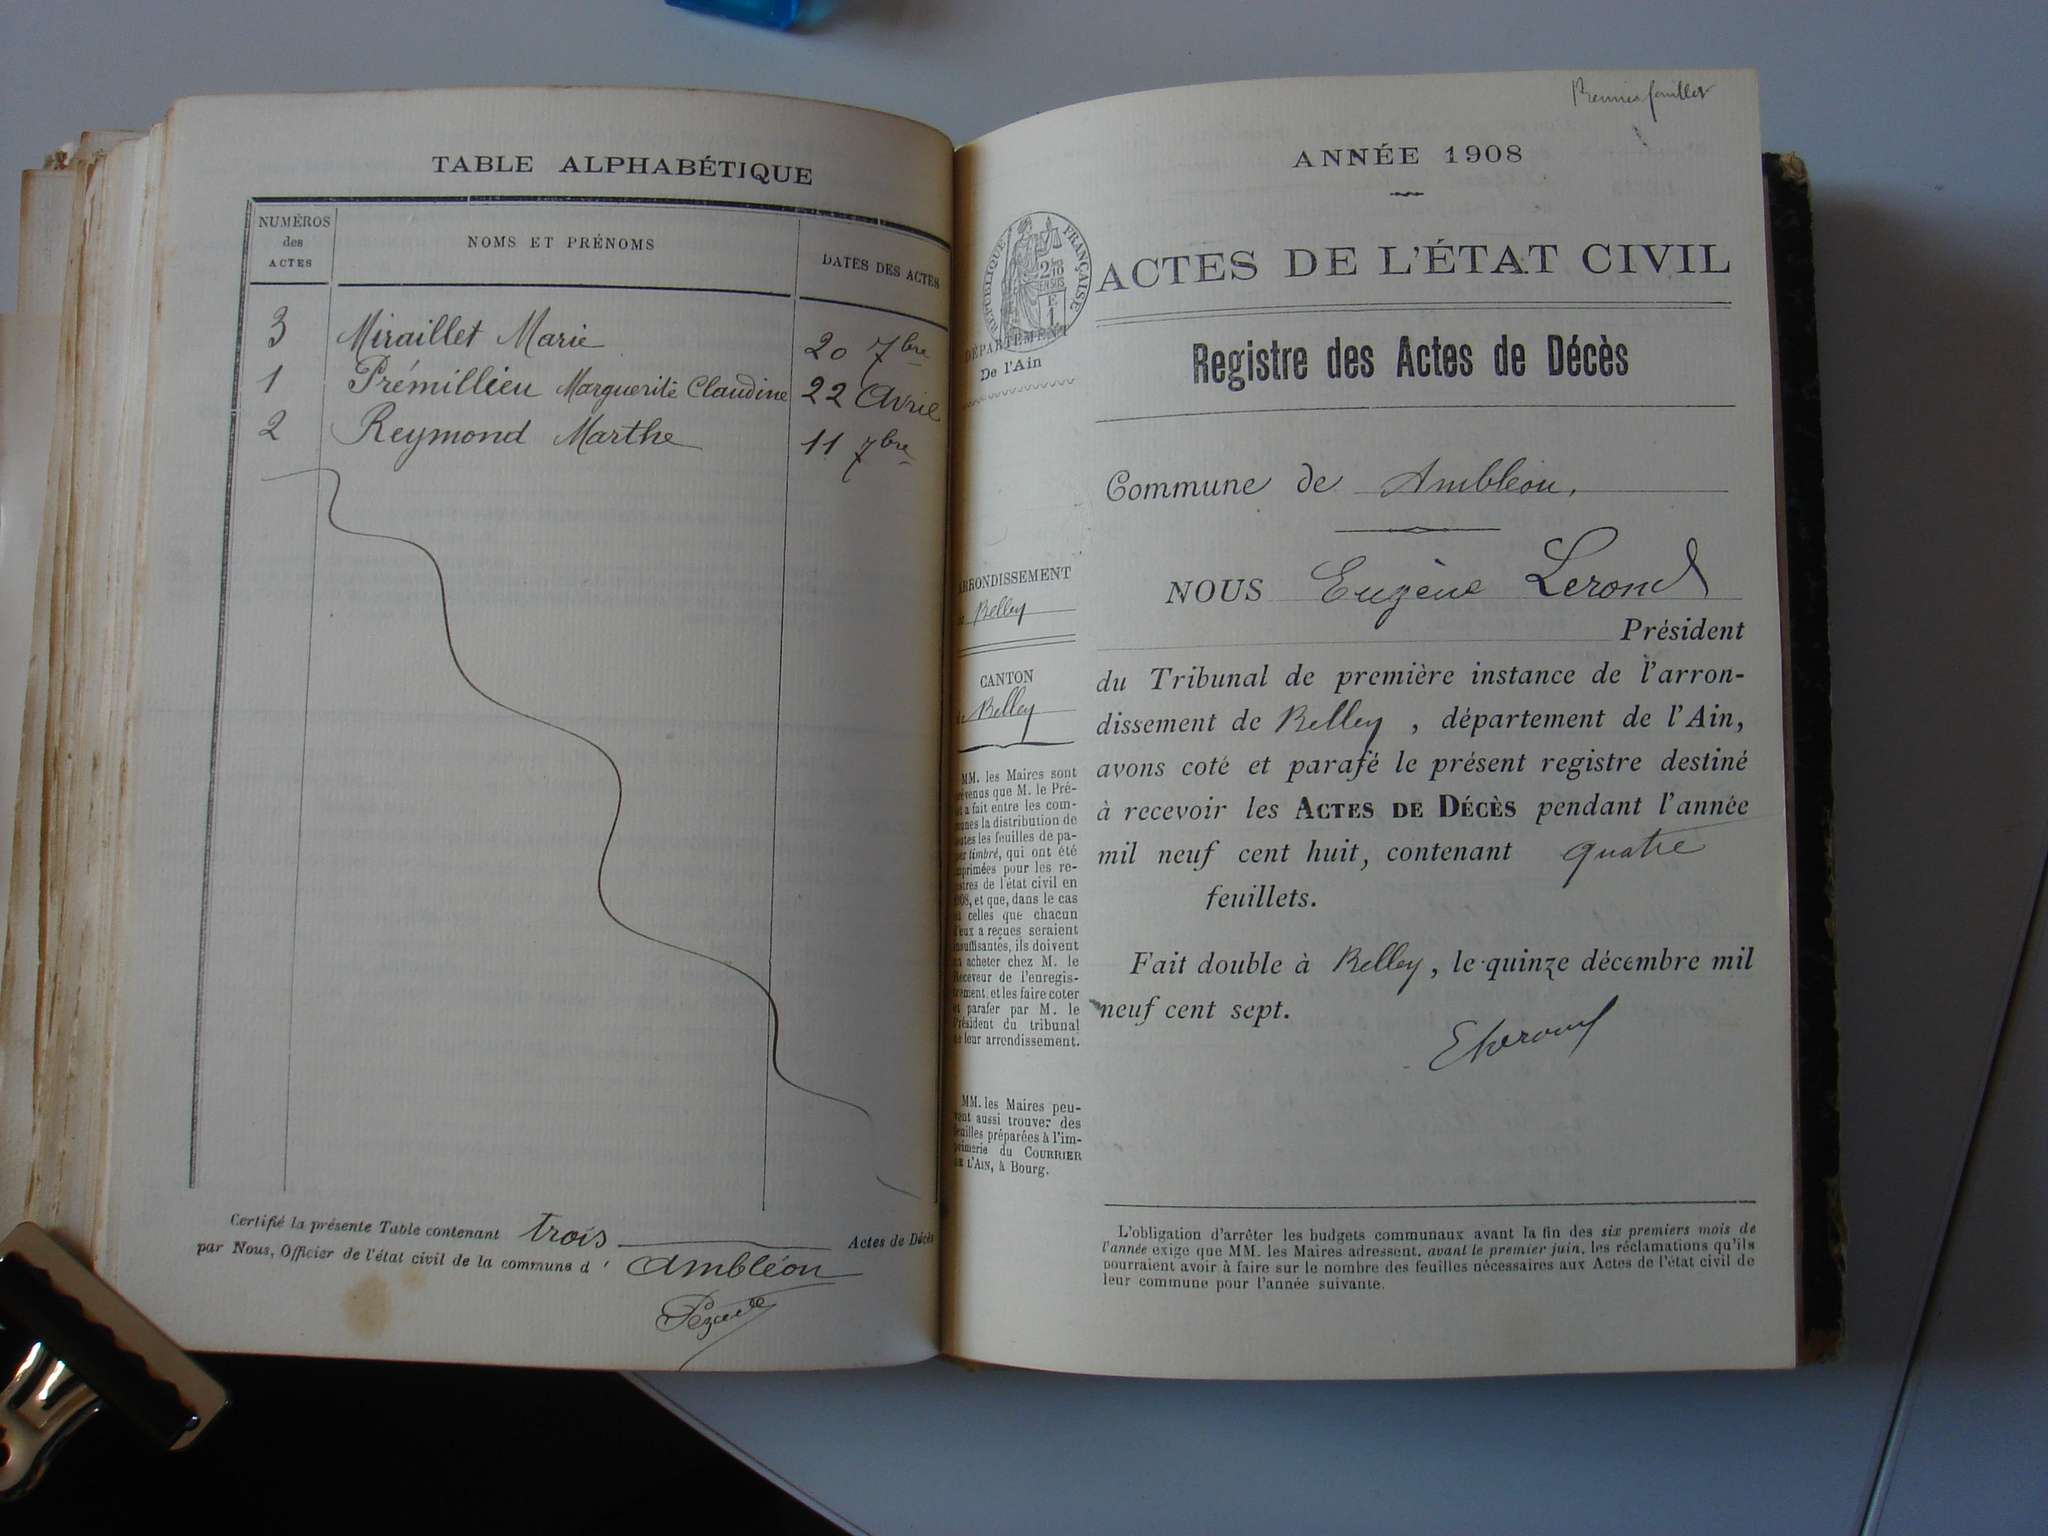 TABLE ALPHABÉTIQUE
NUMÉROS
des
ACTES
NOMS ET PRÉNOMS
DATES DES ACTES
3 Miraillet Marie 20 7bre
1 Prémillieu Marguerite Claudine 22 Avril
2 Reymond Marthe 11 7bre
Certifié la présente Table contenant trois Actes de Décès
par Nous, Officier de l'état civil de la commune d' Ambléon
Premier feuillet
ANNÉE 1908
RÉPUBLIQUE FRANÇAISE
2 10
E
1
DÉPARTEMENT
De l'Ain
ACTES DE L'ÉTAT CIVIL
Registre des Actes de Décès
Commune de Ambléon,
ARRONDISSEMENT
Belley
CANTON
de Belley
MM. les Maires sont
prévenus que M. le Pré-
fet a fait entre les com-
munes la distribution de
toutes les feuilles de pa-
pier timbré, qui ont été
imprimées pour les re-
gistres de l'état civil en
1908, et que, dans le cas
où celles que chacun
d'eux a reçues seraient
insuffisantes, ils doivent
en acheter chez M. le
Receveur de l'enregis-
trement, et les faire coter
et parafer par M. le
Président du tribunal
de leur arrondissement.
MM. les Maires peu-
vent aussi trouver des
feuilles préparées à l'im-
primerie du COURRIER
DE L'AIN, à Bourg.
NOUS Eugène Lerond
Président
du Tribunal de première instance de l'arron-
dissement de Belley, département de l'Ain,
avons coté et parafé le présent registre destiné
à recevoir les ACTES DE DÉCÈS pendant l'année
mil neuf cent huit, contenant quatre
feuillets.
Fait double à Belley, le quinze décembre mil
neuf cent sept.
ELerond
L'obligation d'arrêter les budgets communaux avant la fin des six premiers mois de
l'année exige que MM. les Maires adressent, avant le premier juin, les réclamations qu'ils
pourraient avoir à faire sur le nombre des feuilles nécessaires aux Actes de l'état civil de
leur commune pour l'année suivante.